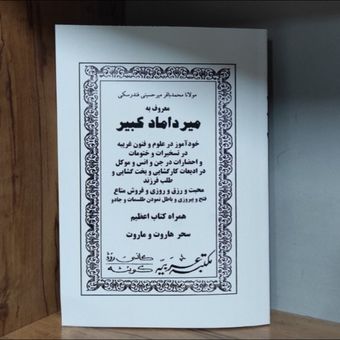 مولانا محمدباقر میرحسینی فندرسکی
معروف به
میر داماد کبیر
خودآموز در علوم و فنون غریبه
در تسخیرات و ختومات
و احضارات در جن و انس و موکل
در ادیعات کارگشایی و بخت گشایی و
طلب فرزند
محبت و رزق و روزی و فروش متاع
فتح و پیروزی و باطل نمودن طلسمات و جادو
همراه کتاب اعظیم
سحر هاروت و ماروت
مکتبه عربیه
کانسی روڈ
کوئٹہ